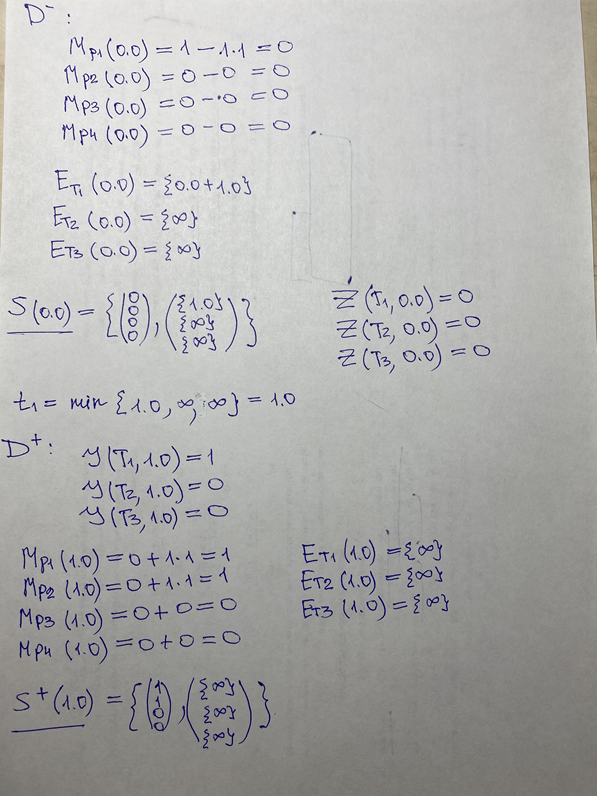 D⁻:
M_P1 (0.0) = 1 − 1·1 = 0
M_P2 (0.0) = 0 − 0 = 0
M_P3 (0.0) = 0 − 0 = 0
M_P4 (0.0) = 0 − 0 = 0
E_T1 (0.0) = {0.0 + 1.0}
E_T2 (0.0) = {∞}
E_T3 (0.0) = {∞}
S(0.0) = {(0 0 0 0), ({1.0} {∞} {∞})}
Z(T1, 0.0) = 0
Z(T2, 0.0) = 0
Z(T3, 0.0) = 0
t1 = min {1.0, ∞, ∞} = 1.0
D⁺:
Y(T1, 1.0) = 1
Y(T2, 1.0) = 0
Y(T3, 1.0) = 0
M_P1 (1.0) = 0 + 1·1 = 1
M_P2 (1.0) = 0 + 1·1 = 1
M_P3 (1.0) = 0 + 0 = 0
M_P4 (1.0) = 0 + 0 = 0
E_T1 (1.0) = {∞}
E_T2 (1.0) = {∞}
E_T3 (1.0) = {∞}
S⁺(1.0) = {(1 1 0 0), ({∞} {∞} {∞})}